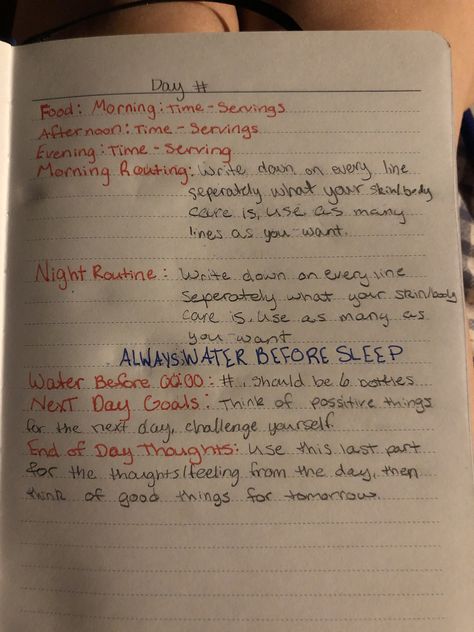 Day #
Food: Morning: Time - Servings
Afternoon: Time - Servings
Evening: Time - Serving
Morning Routing: Write down on every line
seperately what your skin/body
care is, use as many
lines as you want.
Night Routine: Write down on every line
seperately what your skin/body
care is, use as many as
you want
ALWAYS WATER BEFORE SLEEP
Water Before 00:00: #, should be 6 bottles
Next Day Goals: Think of possitive things
for the next day, challenge yourself.
End of Day Thoughts: Use this last part
for the thoughts/feeling from the day, then
think of good things for tomorrow.